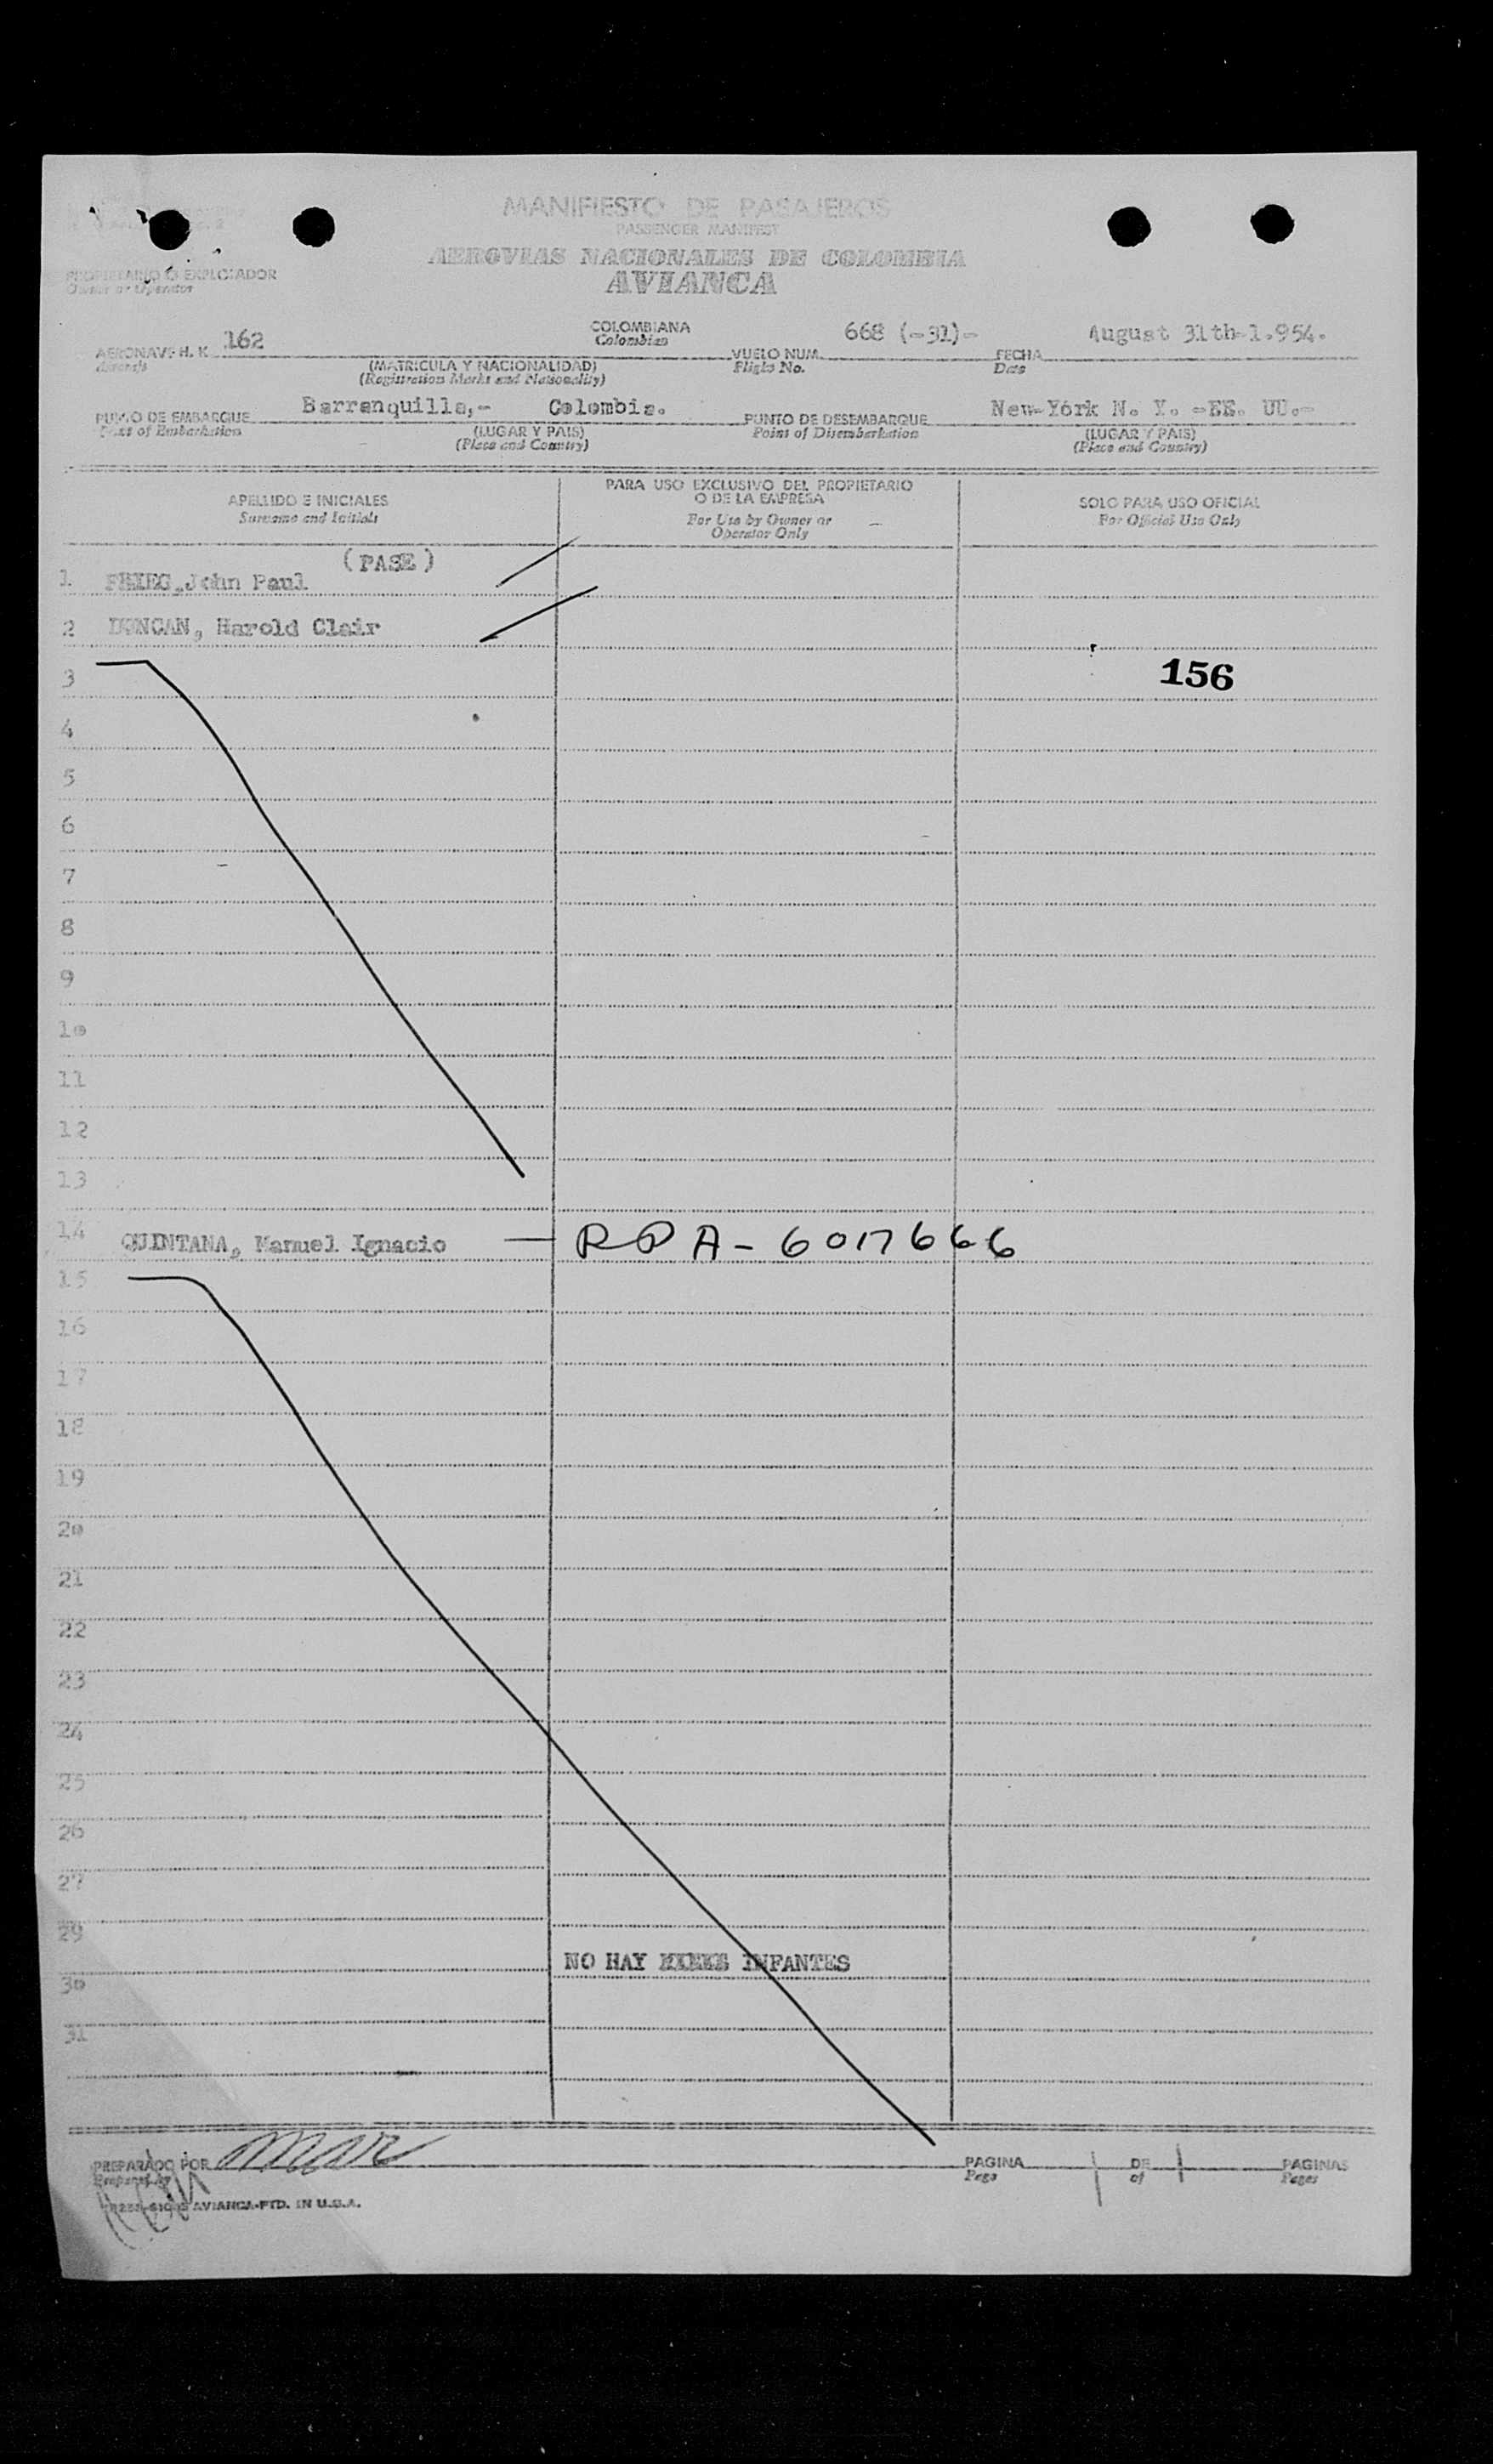 MANIFIESTO DE PASAJEROS
PASSENGER MANIFEST
AEROVIAS NACIONALES DE COLOMBIA
AVIANCA
PROPIETARIO O EXPLOTADOR
Owner or Operator
AERONAVE H. K. 162 COLOMBIANA 668 (-31)- August 31th-1.954.
Colombian
Aircraft (MATRICULA Y NACIONALIDAD) VUELO NUM. FECHA
(Registration Marks and Nationality) Flight No. Date
PUNTO DE EMBARQUE Barranquilla,- Colombia. PUNTO DE DESEMBARQUE New-York N. Y. -EE. UU.-
Point of Embarkation (LUGAR Y PAIS) Point of Disembarkation (LUGAR Y PAIS)
(Place and Country) (Place and Country)
APELLIDO E INICIALES
Surname and Initials
PARA USO EXCLUSIVO DEL PROPIETARIO
O DE LA EMPRESA
For Use by Owner or
Operator Only
SOLO PARA USO OFICIAL
For Official Use Only
(PASE)
1 John Paul
2 DUNCAN, Harold Clair
3 156
4
5
6
7
8
9
10
11
12
13
14 QUINTANA, Manuel Ignacio — RPA-6017666
15
16
17
18
19
20
21
22
23
24
25
26
27
29
NO HAY INFANTES
30
31
PREPARADO POR PAGINA 1 DE 1 PAGINAS
Prepared by Page of Pages
AVIANCA-PTD. IN U.S.A.